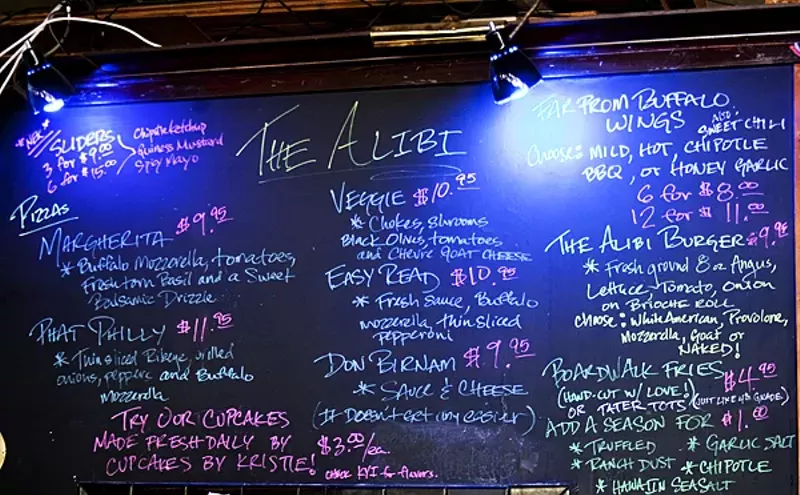 *NEW*
SLIDERS
3 for $9.00
6 for $15.00
Chipotle Ketchup
Guiness Mustard
Spicy Mayo
THE ALIBI
PIZZAS
MARGHERITA $9.95
* Buffalo Mozzerella, tomatoes,
Fresh torn Basil and a Sweet
Balsamic Drizzle
PHAT PHILLY $11.95
* Thin sliced Ribeye, grilled
onions, peppers and Buffalo
mozzerella
TRY OUR CUPCAKES
MADE FRESH DAILY BY
CUPCAKES BY KRISTIE!
$3.00/ea.
check KYI for flavors.
VEGGIE $10.95
* Chokes, shrooms
Black Olives, tomatoes
and Chevre GOAT CHEESE
EASY READ $10.95
* Fresh sauce, Buffalo
mozzerella, thin sliced
pepperoni
DON BIRNAM $9.95
* SAUCE & CHEESE
(It Doesn't get any easier)
FAR FROM BUFFALO
WINGS
ALSO
SWEET CHILI
CHOOSE: MILD, HOT, CHIPOTLE
BBQ, or HONEY GARLIC
6 for $8.00
12 for $11.00
THE ALIBI BURGER $9.95
* Fresh ground 8 oz Angus,
Lettuce, Tomato, Onion
on BRIOCHE ROLL
CHOOSE: White American, Provolone,
Mozzerella, Goat or
NAKED!
BOARDWALK FRIES $4.95
(HAND-CUT W/ LOVE!)
OR TATER TOTS (JUST LIKE 4th GRADE)
ADD A SEASON FOR $1.00
* TRUFFLED * GARLIC SALT
* RANCH DUST * CHIPOTLE
* HAWAIIN SEA SALT